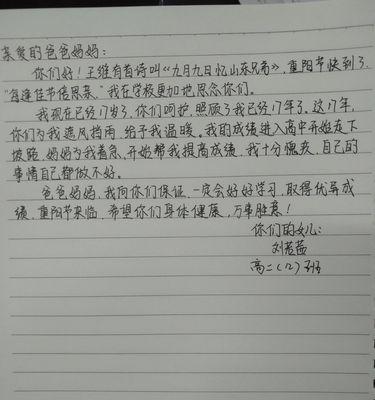 亲爱的爸爸妈妈：
你们好！王维有首诗叫《九月九日忆山东兄弟》，重阳节快到了，
“每逢佳节倍思亲。”我在学校更加地思念你们。
我现在已经17岁了，你们呵护、照顾了我已经17年了。这17年，
你们为我遮风挡雨，给予我温暖。我的成绩进入高中开始走下
坡路，妈妈为我着急，开始帮我提高成绩，我十分愧疚，自己的
事情自己都做不好。
爸爸妈妈，我向你们保证，一定会好好学习，取得优异成
绩，重阳节来临，希望你们身体健康，万事胜意！
你们的女儿：
刘若茜
高二（12）班